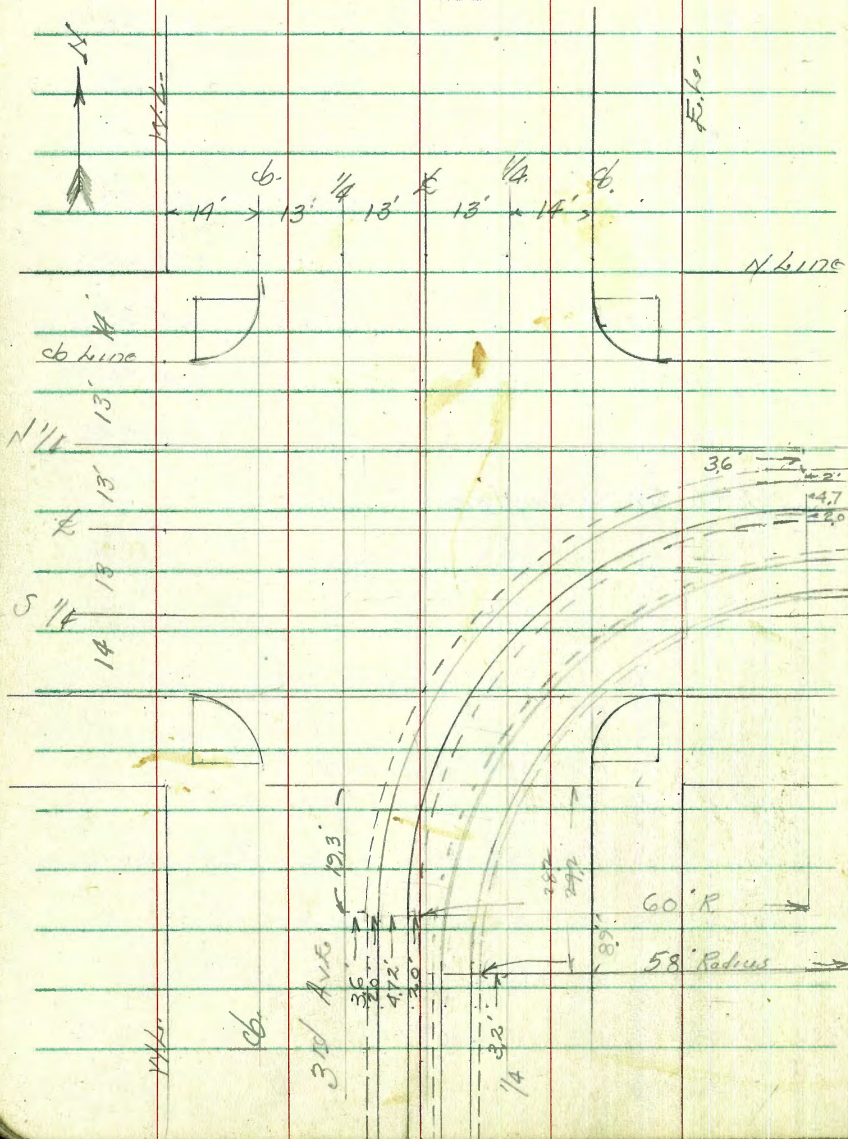 N
W.L.
E.Lo.
cb. 1/4 ℄ 1/4. cb.
14' 13' 13' 13' 14'
N Line
14'
cb Line
13'
N 1/4
13'
℄
13
S 1/4
14
3.6'
2'
4.7
2.0
19.3'
28.2
29.2
60' R
8.9'
58' Radius
3.6'
2.0'
4.72'
2.0'
3.2'
1/4
3rd Ave
W.L.
cb.